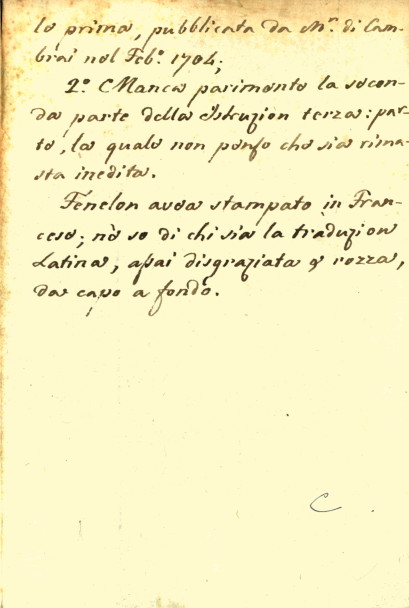 la prima, pubblicata da Mr. di Cam-
brai nel Febo. 1704;
2o. Manca parimente la secon-
da parte della istruzion terza: par-
te, la quale non penso che sia rima-
sta inedita.
Fenelon avea stampato in Fran-
cese; nè so di chi sia la traduzion
Latina, assai disgraziata e rozza,
da capo a fondo.
C